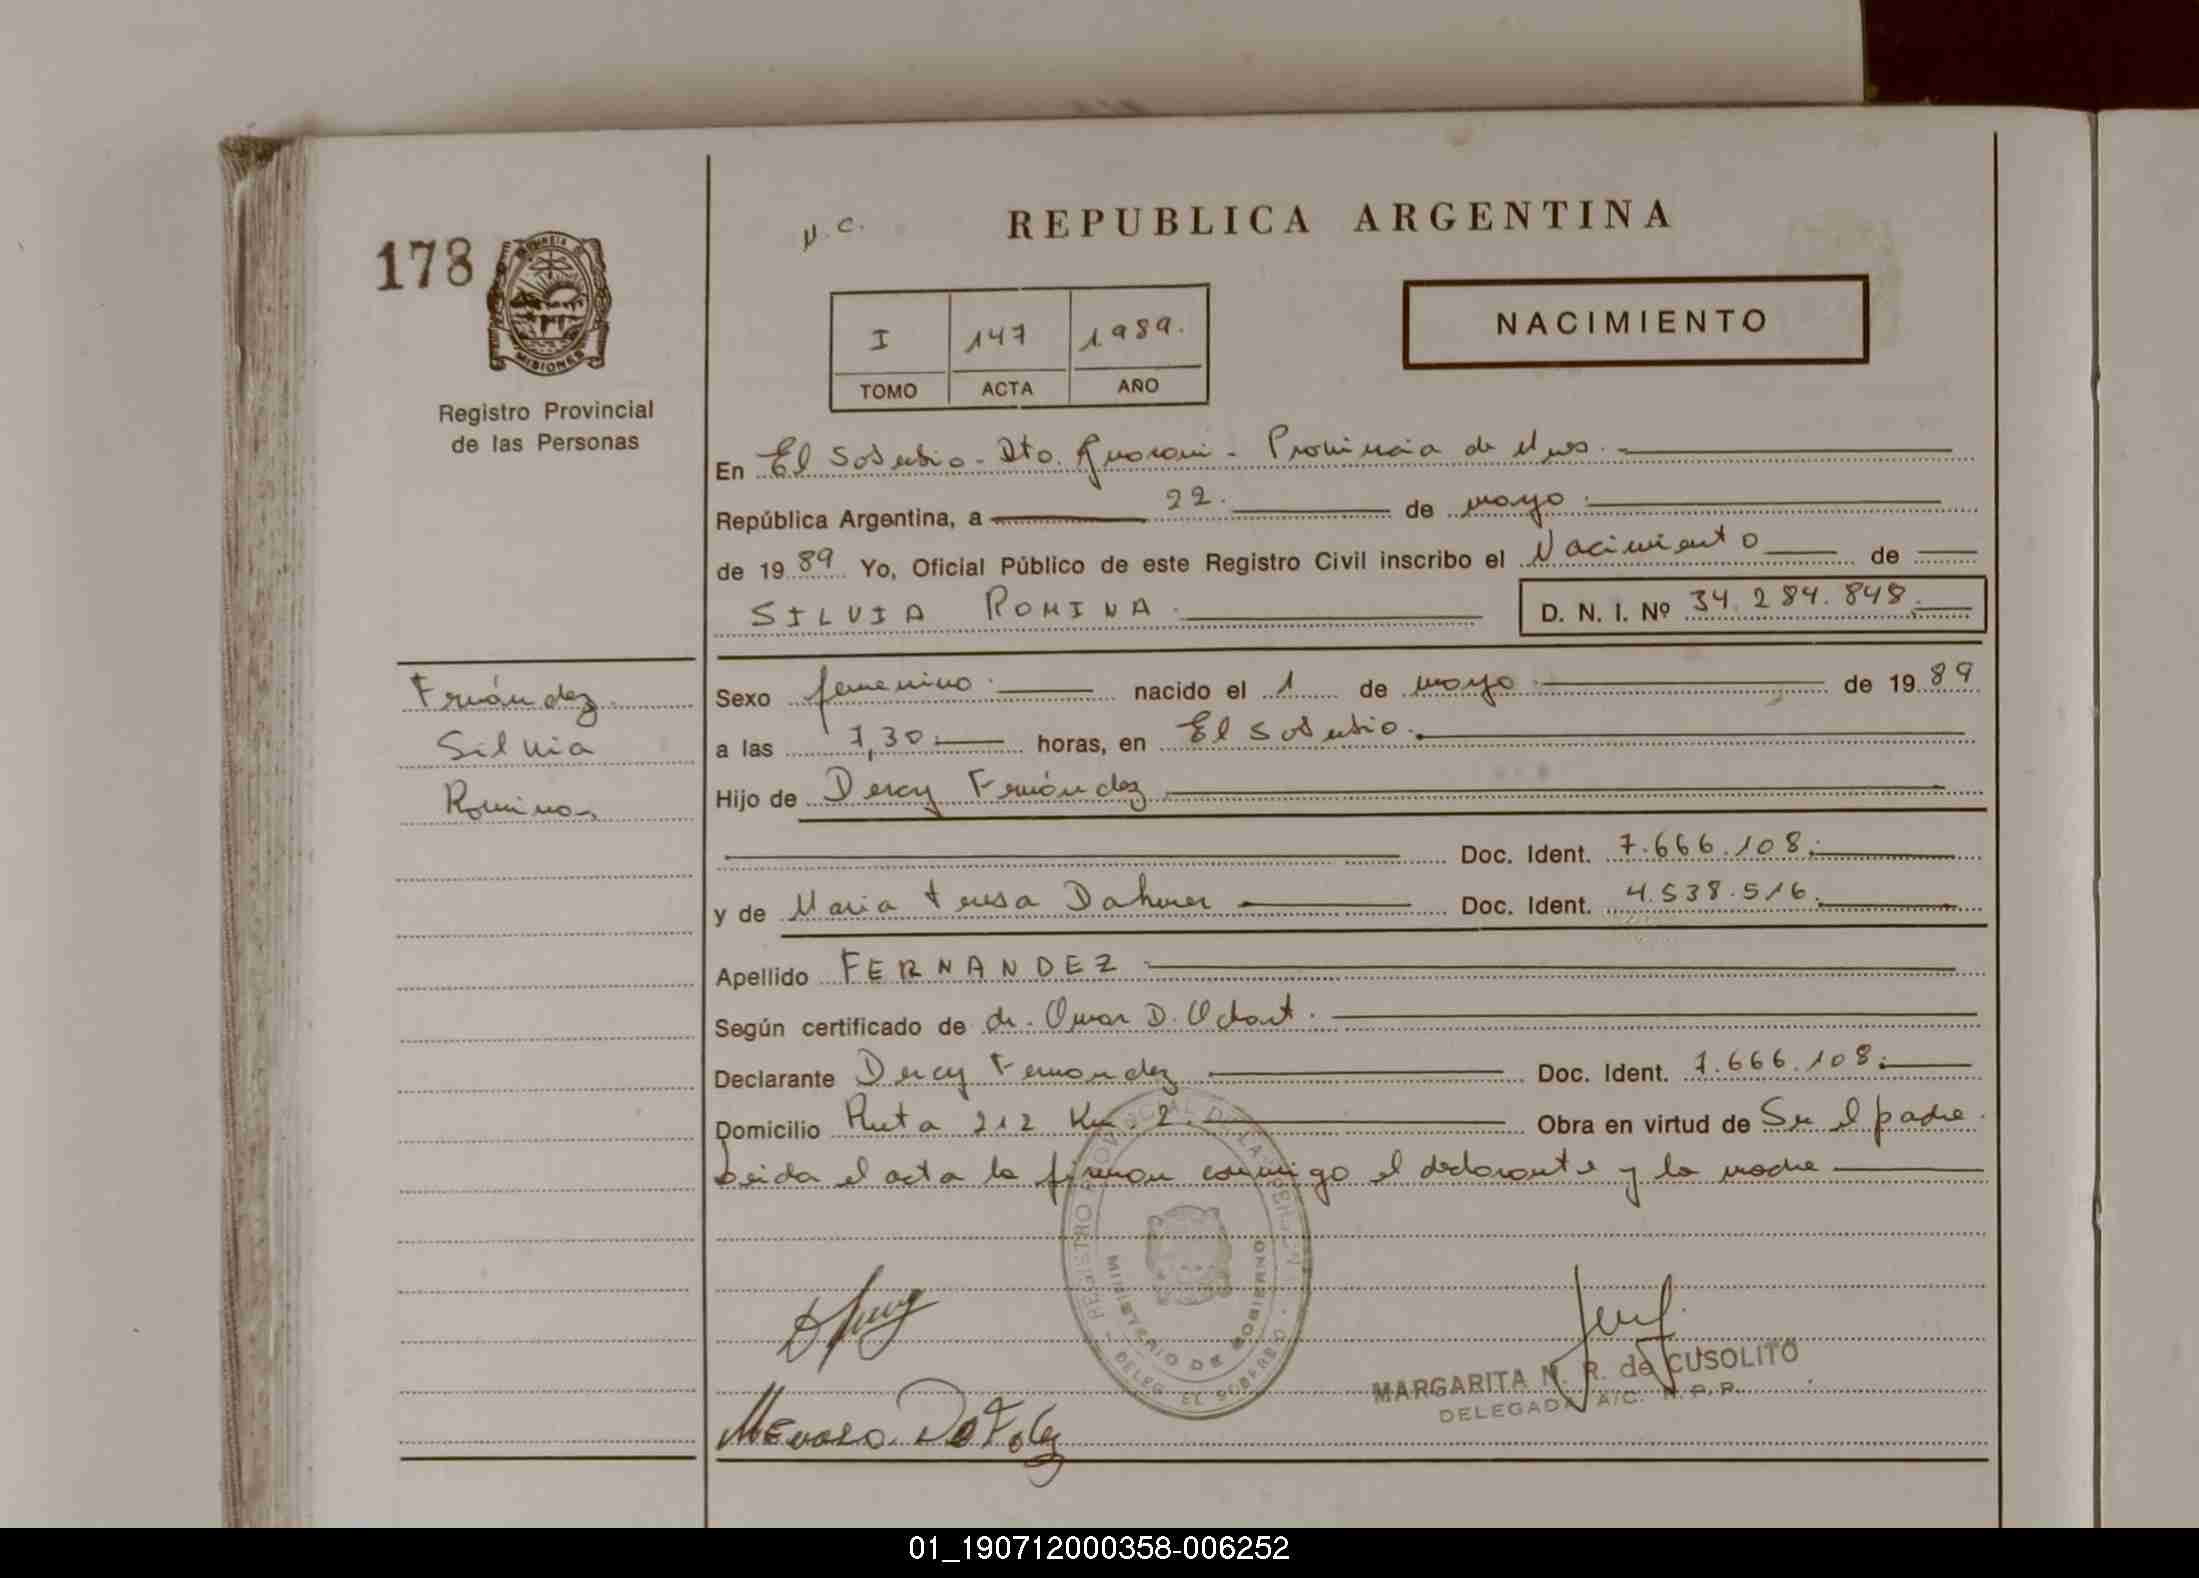 178
PROVINCIA DE
MISIONES
Registro Provincial
de las Personas
N.C.
REPUBLICA ARGENTINA
I 147 1989.
TOMO ACTA AÑO
NACIMIENTO
En El Soberbio - Dto. Guaraní - Provincia de Mnes.
República Argentina, a 22. de mayo.
de 19 89 Yo, Oficial Público de este Registro Civil inscribo el Nacimiento de
SILVIA ROMINA. D. N. I. Nº 34.284.848.
Fernández
Silvia
Romina
Sexo femenino. nacido el 1 de mayo. de 19 89
a las 7,30. horas, en El Soberbio.
Hijo de Dercy Fernández
Doc. Ident. 7.666.108.
y de Maria Teresa Dahmer Doc. Ident. 4.538.516.
Apellido FERNANDEZ
Según certificado de dr. Omar D.
Declarante Dercy Fernandez Doc. Ident. 7.666.108.
Domicilio Ruta 212 Km. 2. Obra en virtud de Ser el padre.
Leida el acta la firman conmigo el declarante y la madre
REGISTRO PROVINCIAL DE LAS PERSONAS
MINISTERIO DE GOBIERNO
DELEG. EL SOBERBIO
MARGARITA N. R. de CUSOLITO
DELEGADA A/C. R. P. P.
01_190712000358-006252